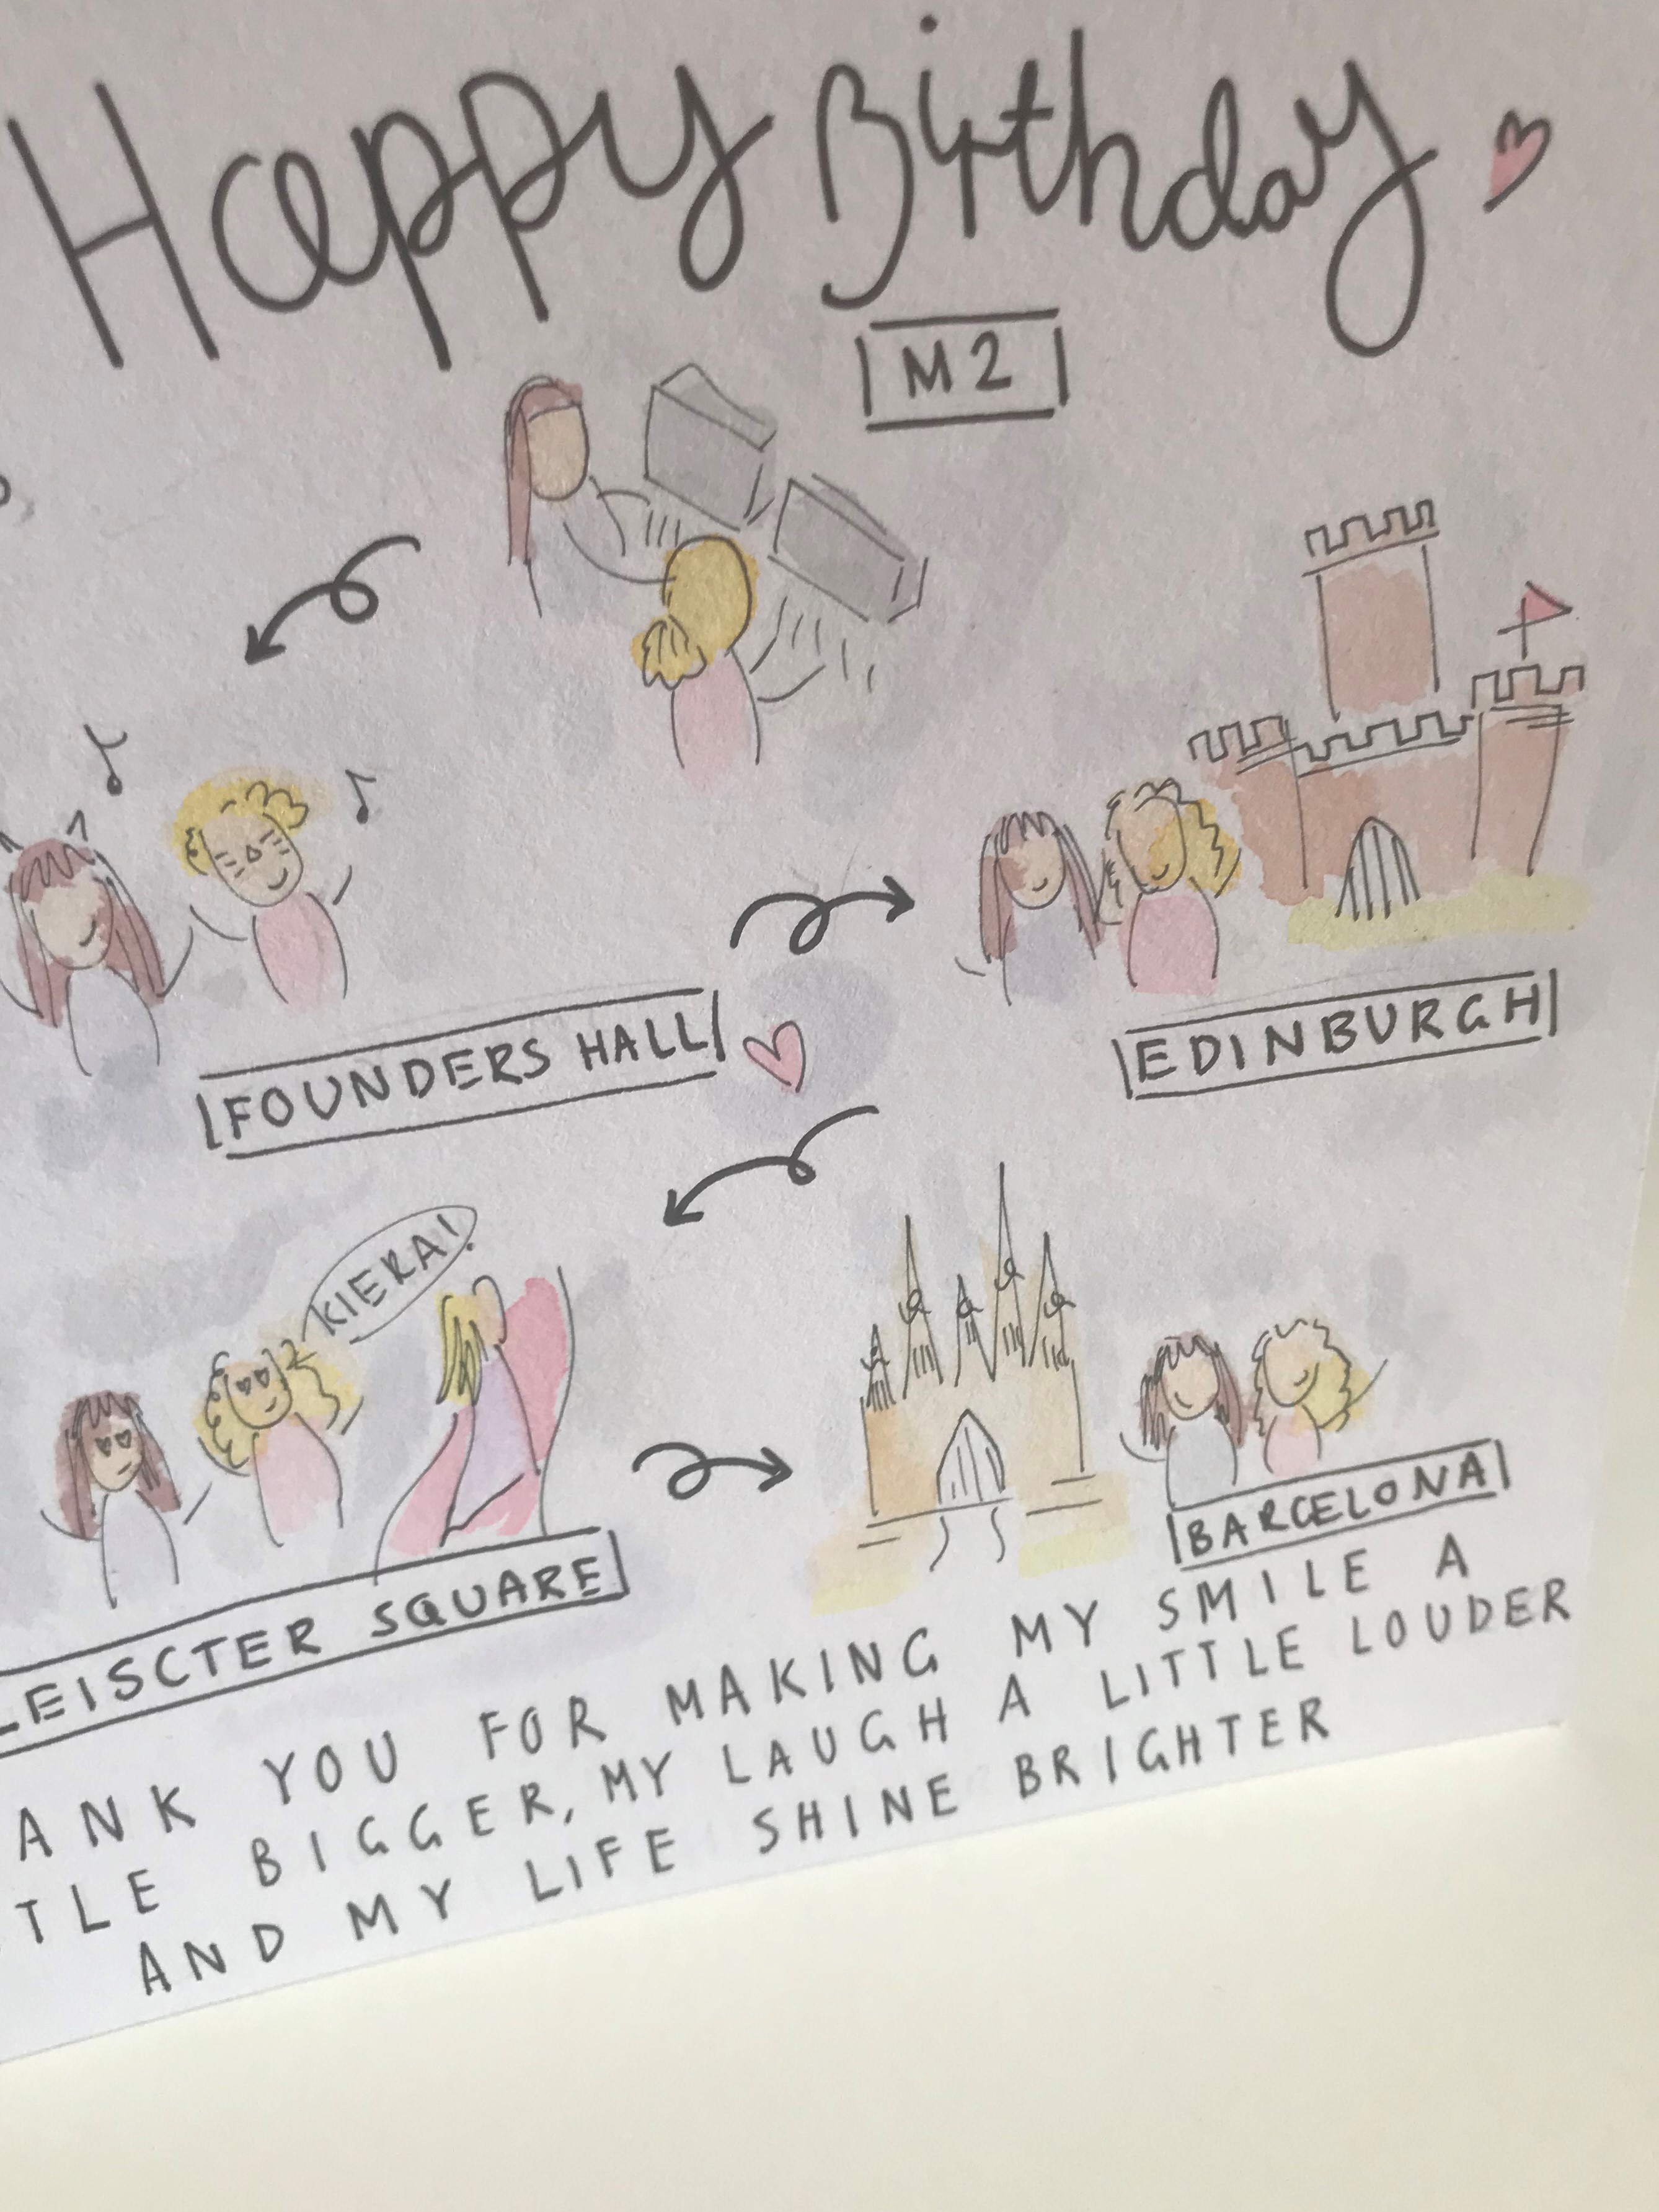 Happy Birthday
M2
FOUNDERS HALL
EDINBURGH
KIERA!
LEISCTER SQUARE
BARCELONA
ANK YOU FOR MAKING MY SMILE A
TLE BIGGER, MY LAUGH A LITTLE LOUDER
AND MY LIFE SHINE BRIGHTER